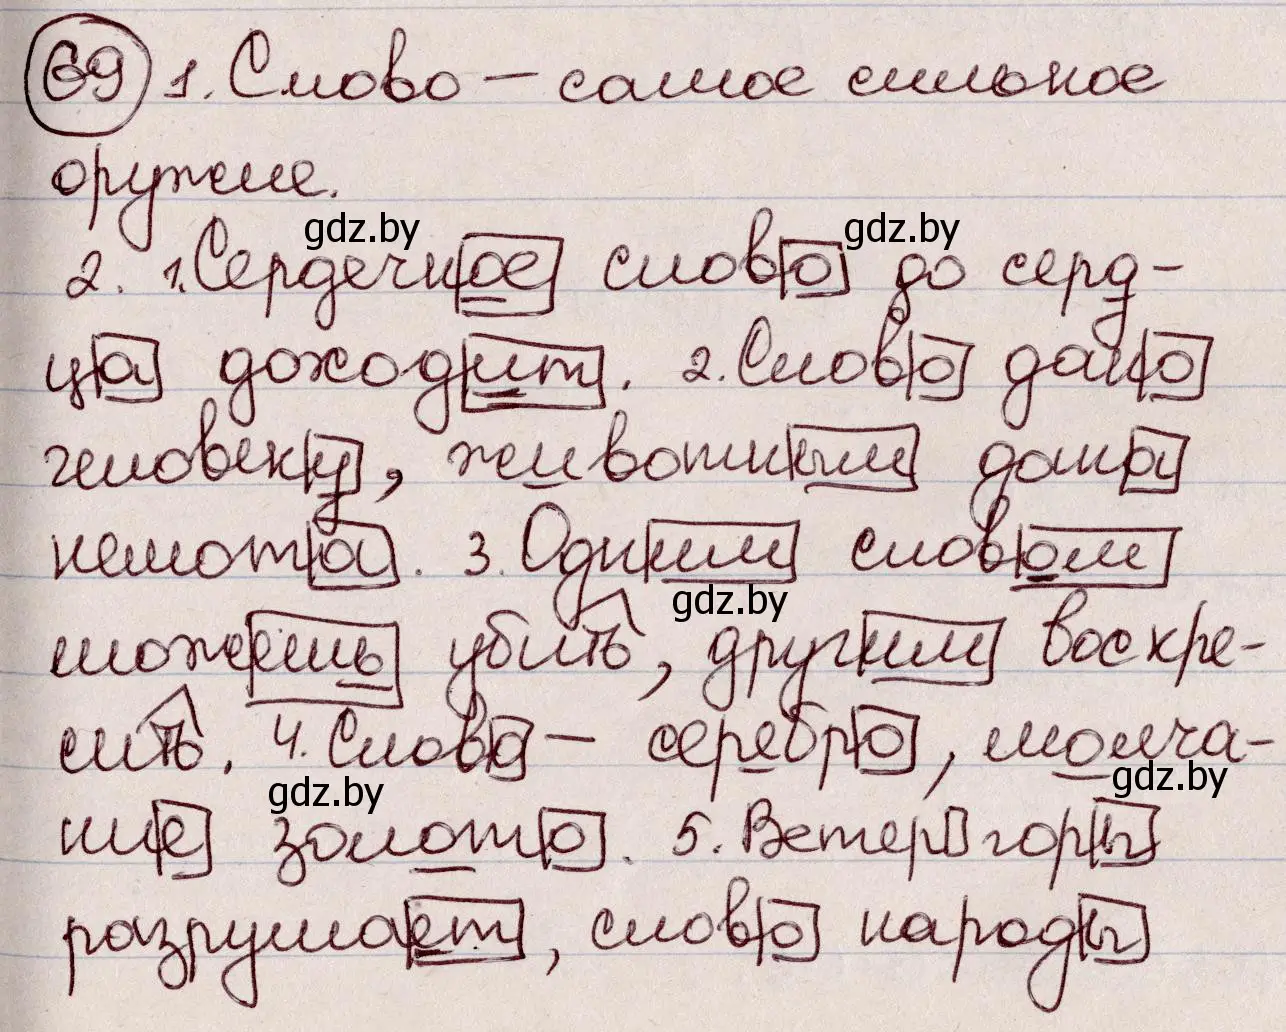 69 1. Слово — самое сильное
оружие.
gdz.by gdz.by
2. 1. Сердечное слово до серд-
ца доходит. 2. Слово дано
человеку, животным дана
немота. 3. Одним словом
gdz.by
можешь убить, другим воскре-
сить. 4. Слово — серебро, молча-
gdz.by gdz.by
ние золото. 5. Ветер горы
разрушает, слово народы